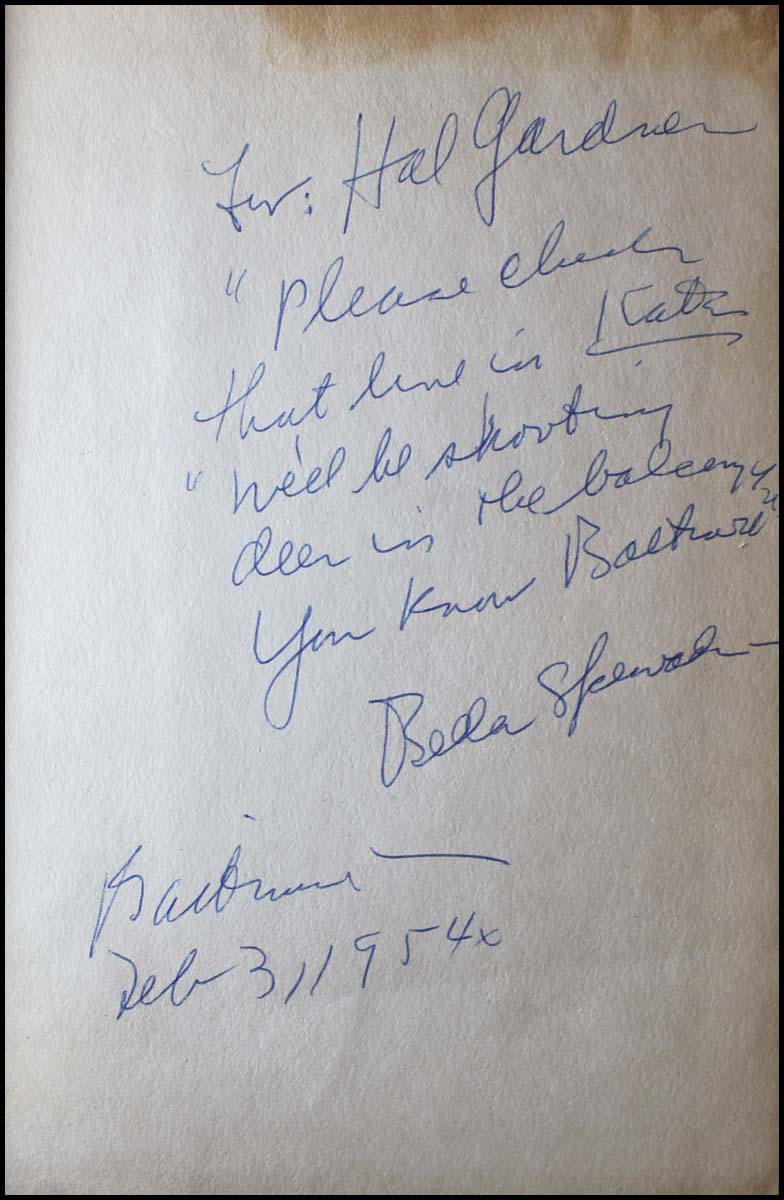 For: Hal Gardner
"Please check
that line in Kate
"We'll be shooting
deer in the balcony"
You know Baltimore"
Bella Spewack
Baltimore
Feb 3, 1954